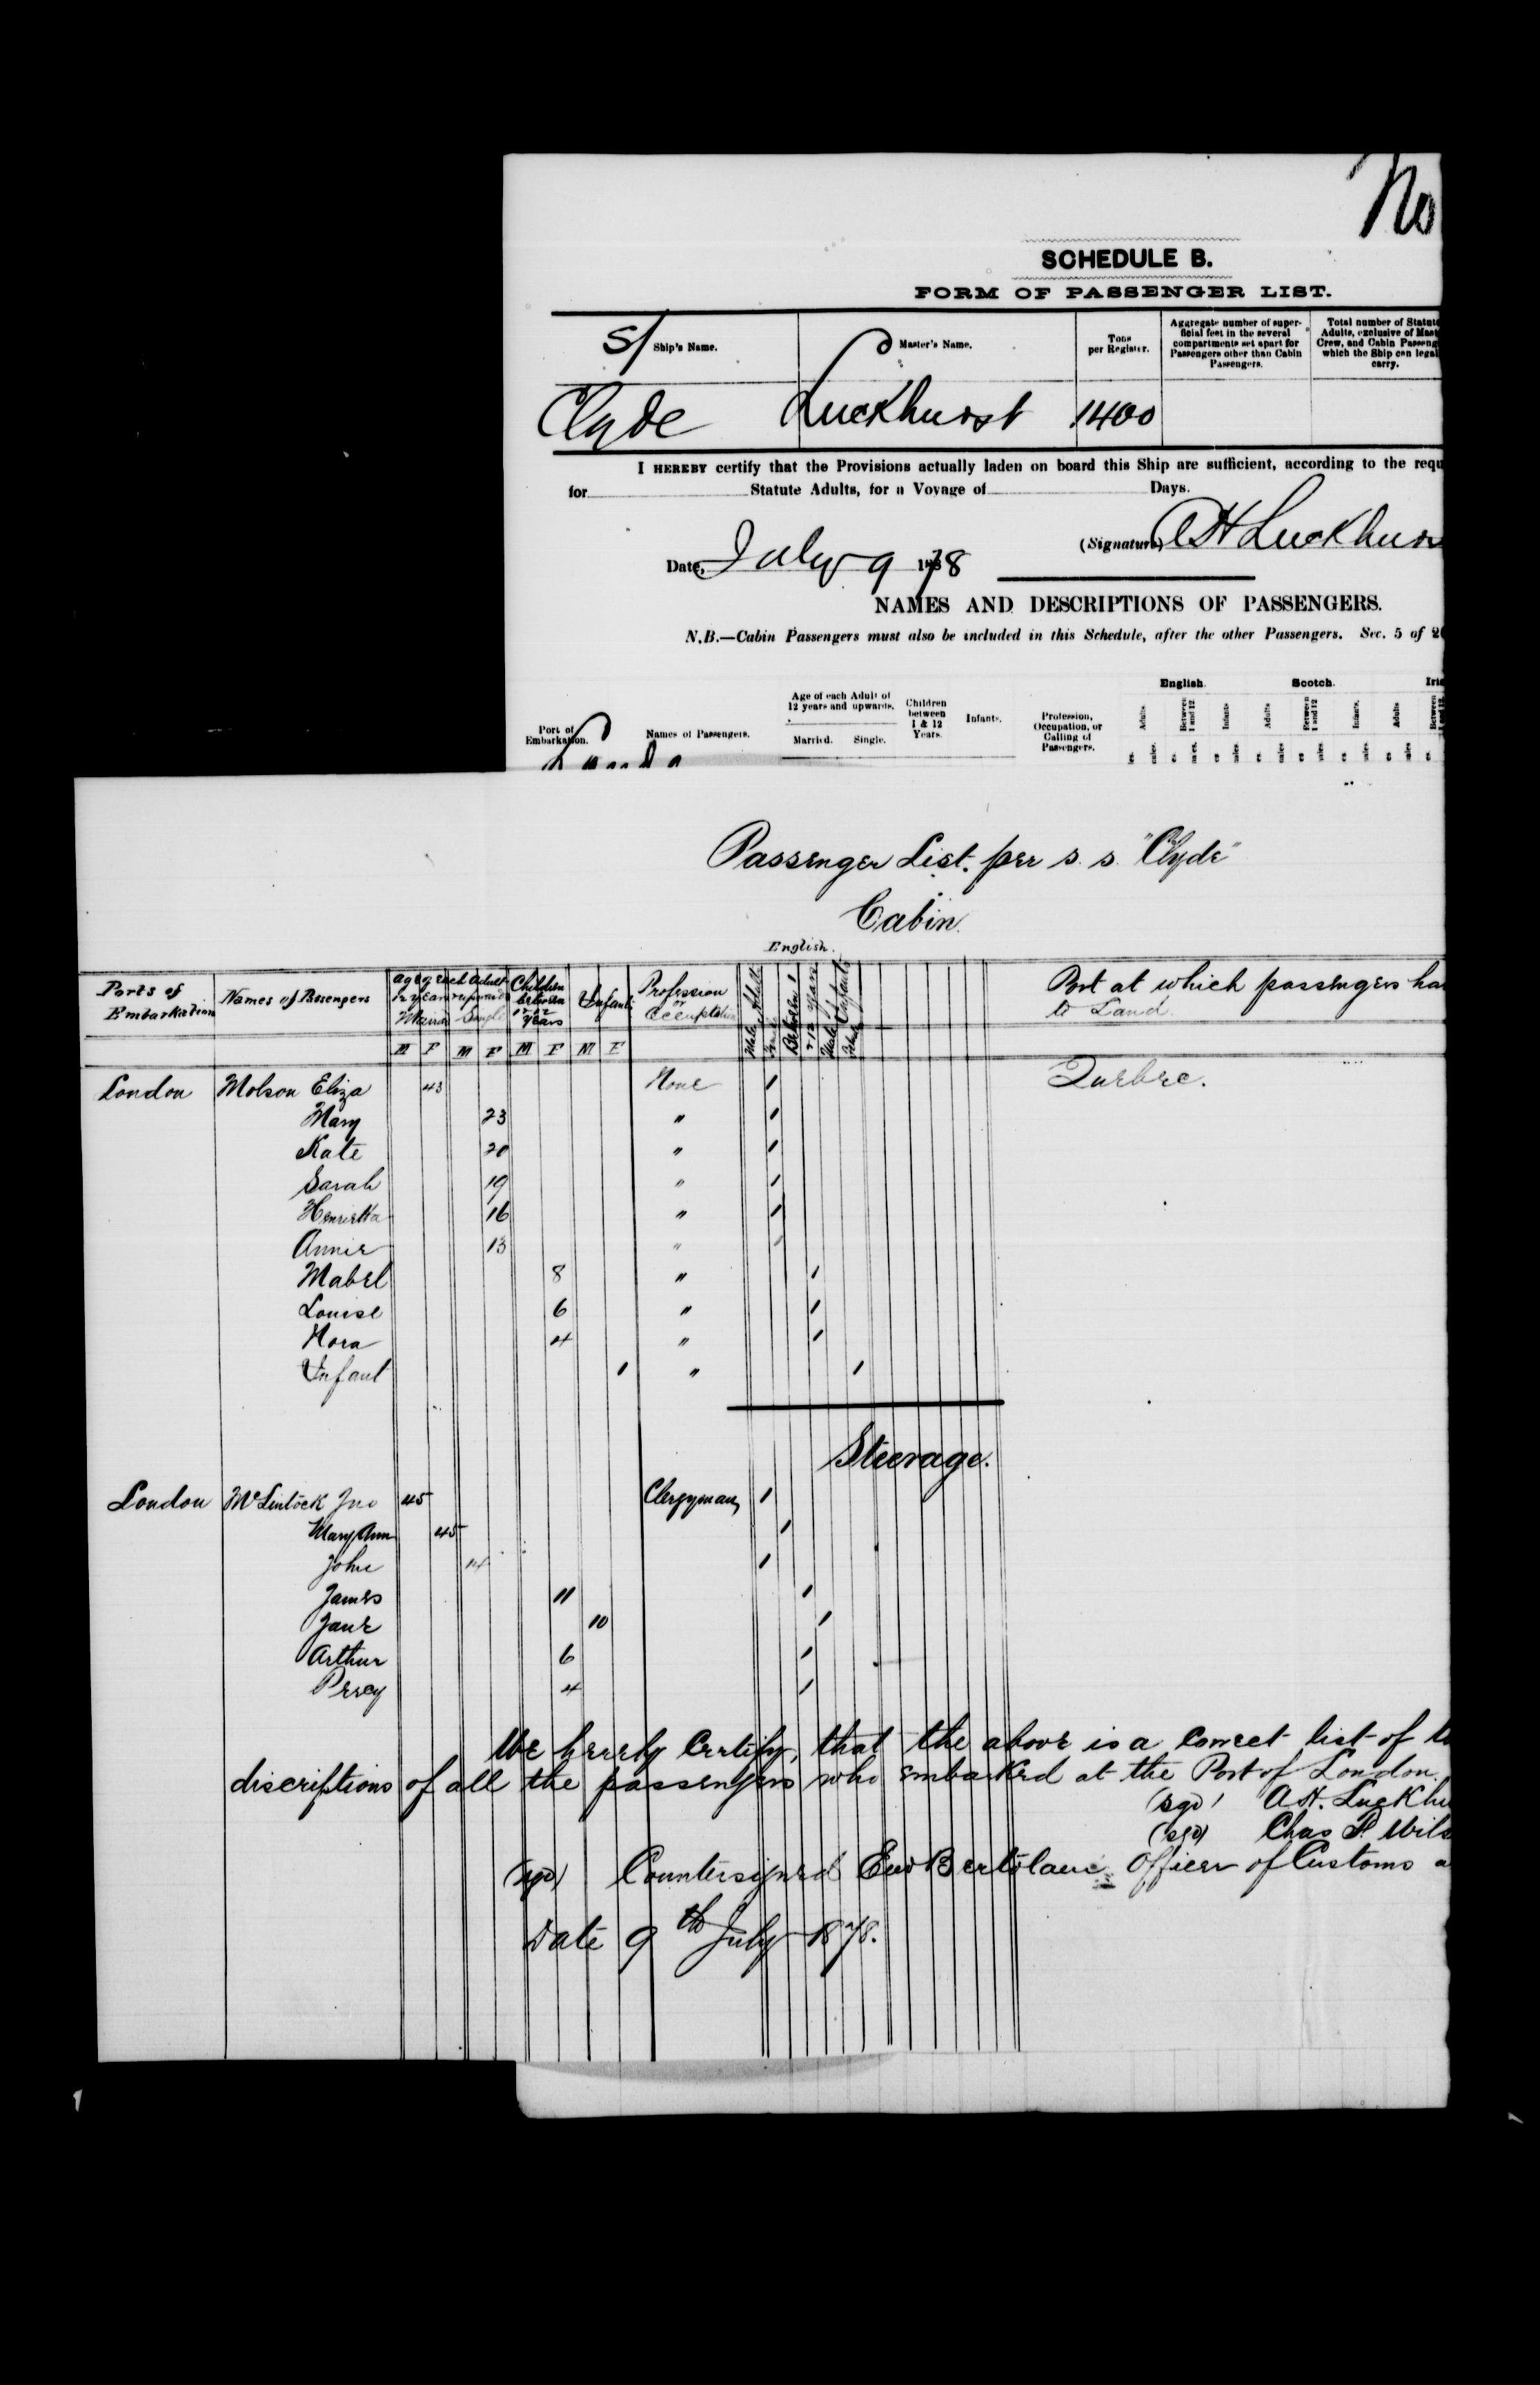 No
SCHEDULE B.
FORM OF PASSENGER LIST.
S/ Ship's Name. Master's Name. Tons per Register. Aggregate number of superficial feet in the several compartments set apart for Passengers other than Cabin Passengers. Total number of Statute Adults, exclusive of Mast Crew, and Cabin Passeng which the Ship can legal carry.
Clyde Luckhurst 1400
I HEREBY certify that the Provisions actually laden on board this Ship are sufficient, according to the requ
for Statute Adults, for a Voyage of Days.
(Signature) A H Luckhurs
Date, July 9 1878
NAMES AND DESCRIPTIONS OF PASSENGERS.
N.B.—Cabin Passengers must also be included in this Schedule, after the other Passengers. Sec. 5 of 2
English. Scotch. Iris
Port of Embarkation. Names of Passengers. Age of each Adult of 12 years and upwards. Married. Single. Children between 1 & 12 Years. Infants. Profession, Occupation, or Calling of Passengers. Adults. Between 1 and 12 Infants Adults Between 1 and 12 Infants. Adults Between 1 and 12
Passenger List. per s. s. "Clyde"
Cabin.
English.
Ports of Embarkation Names of Passengers Age of each Adult 12 years & upwards Married Single Children between 1 & 12 Years Infants Profession or Occupation Male Adults Between 1 & 12 Years Male Infants Port at which passengers ha
to Land
M F M F M F M F
London Molson Eliza 43 None 1 Quebec.
Mary 23 " 1
Kate 20 " 1
Sarah 19 " 1
Henrietta 16 " 1
Annie 13 " 1
Mabel 8 " 1
Louise 6 " 1
Nora 4 " 1
Infant 1 " 1
Steerage.
London McLintock Jno 45 Clergyman 1
Mary Ann 45 1
John 14 1
James 11 1
Jane 10 1
Arthur 6 1
Percy 4 1
We hereby Certify, that the above is a Correct list of
discriptions of all the passengers who embarked at the Port of London.
(sgd) A. H. Luckhu
(sgd) Chas P. Wils
(sgd) Countersigned Officer of Customs a
Date 9th July 1878.